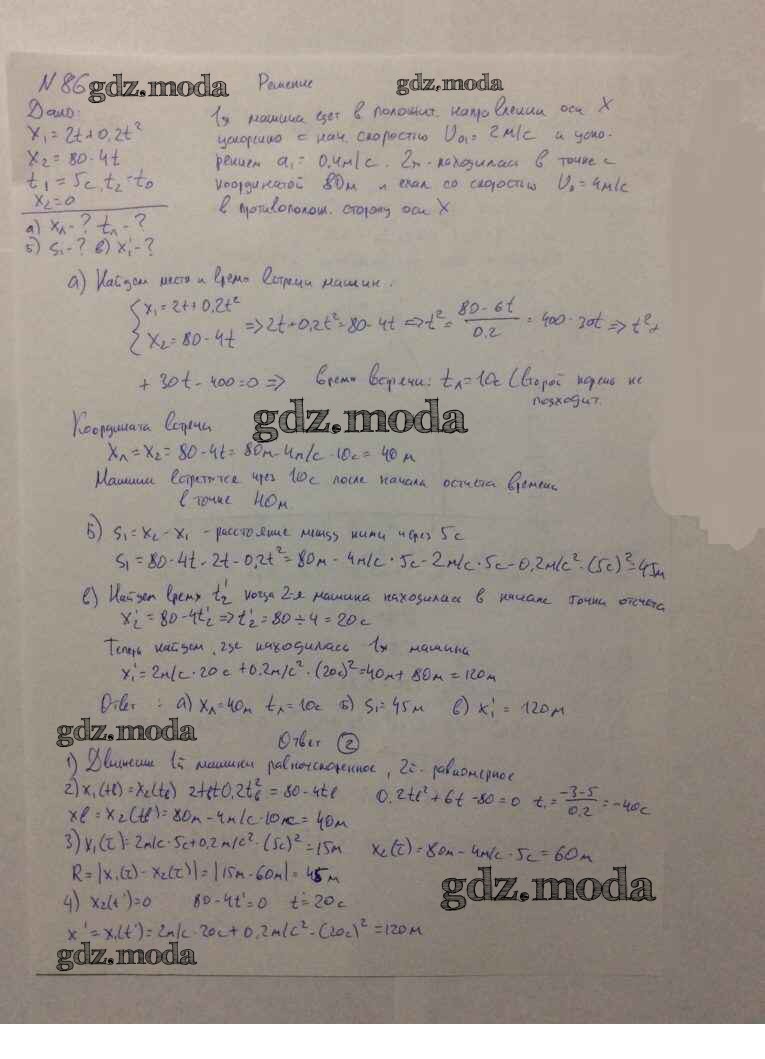 N 86 gdz.moda Решение gdz.moda
Дано:
x₁ = 2t + 0,2t²
x₂ = 80 - 4t
t₁ = 5c, t₂ = t₀
x₂ = 0
а) xл - ? tл - ?
б) s₁ - ? в) x₁' - ?
1я машина едет в положит. направлении оси X
ускорено с нач. скоростью U₀₁ = 2 м/с и уско-
рением a₁ = 0,4 м/с. 2я находилась в точке с
координатой 80м и ехал со скоростью U₀ = 4м/с
в противополож. сторону оси X
а) Найдем место и время встречи машин.
x₁ = 2t + 0,2t²
x₂ = 80 - 4t
⇒ 2t + 0,2t² = 80 - 4t ⇒ t² = (80 - 6t)/0.2 = 400 - 30t ⇒ t² +
+ 30t - 400 = 0 ⇒ время встречи: tл = 10c (второй корень не
подходит.
gdz.moda
Координата встречи
xл = x₂ = 80 - 4t = 80м - 4м/с · 10c = 40 м
Машины встретятся через 10с после начала отсчета времени
в точке 40м.
Б) s₁ = x₂ - x₁ - расстояние между ними через 5с
s₁ = 80 - 4t - 2t - 0,2t² = 80м - 4м/с · 5c - 2м/с · 5c - 0,2м/с² · (5c)² = 45м
в) Найдем время t₂' когда 2-я машина находилась в начале точки отсчета
x₂' = 80 - 4t₂' ⇒ t₂' = 80 ÷ 4 = 20c
Теперь найдем, где находилась 1я машина
x₁' = 2м/с · 20c + 0,2м/с² · (20c)² = 40м + 80м = 120м
Ответ : а) xл = 40м tл = 10c б) s₁ = 45м в) x₁' = 120м
gdz.moda
Ответ 2
1) Движение 1й машины равноускоренное, 2й - равномерное
2) x₁(tв) = x₂(tв) 2tв + 0,2tв² = 80 - 4tв 0.2tв² + 6t - 80 = 0 t₁ = (-3-5)/0.2 = -40c
xв = x₂(tв) = 80м - 4м/с · 10с = 40м
3) x₁(τ) = 2м/с · 5c + 0,2м/с² · (5c)² = 15м x₂(τ) = 80м - 4м/с · 5c = 60м
R = |x₁(τ) - x₂(τ)| = |15м - 60м| = 45м
gdz.moda
4) x₂(t') = 0 80 - 4t' = 0 t' = 20c
x' = x₁(t') = 2м/с · 20c + 0,2м/с² · (20c)² = 120м
gdz.moda